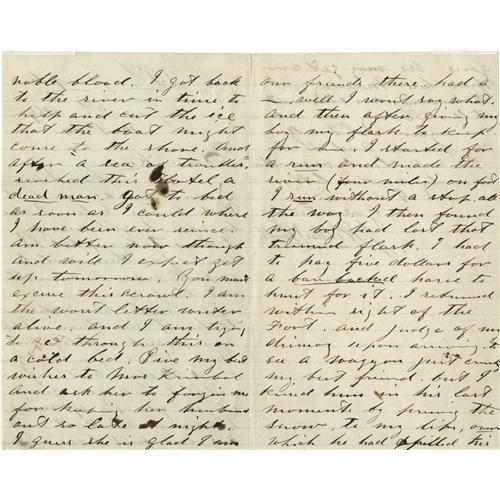 noble blood. I got back
to the river in time to
help and cut the ice
that the boat might
come to the shore. And
after a sea of troubles
reached this Hotel a
dead man. got to bed
as soon as I could where
I have been ever since.
Am better now though
and will I expect get
up tomorrow. You must
excuse this scrawl. I am
the worst letter writer
alive. and I am trying
to get through this on
a cold bed. Give my best
wishes to Mrs Kimbal
And ask her to forgive me
for keeping her husband
out so late at night.
I guess she is glad I am
our friends there had a
— well I wont say what.
And then after giving my
boy my flask to keep
for me. I started for
a run and made the
river (four miles) on foot
I run without a stop all
the way I then found
my boy had lost that
flask. I had
to pay five dollars for
a bare-backed horse to
hunt for it. I returned
within sight of the
Fort. And judge of my
upon arriving to
see a waggon just crush
my best friend. but I
kissed him in his last
moments by pressing the
snow, to my lips, over
which he had spilled his